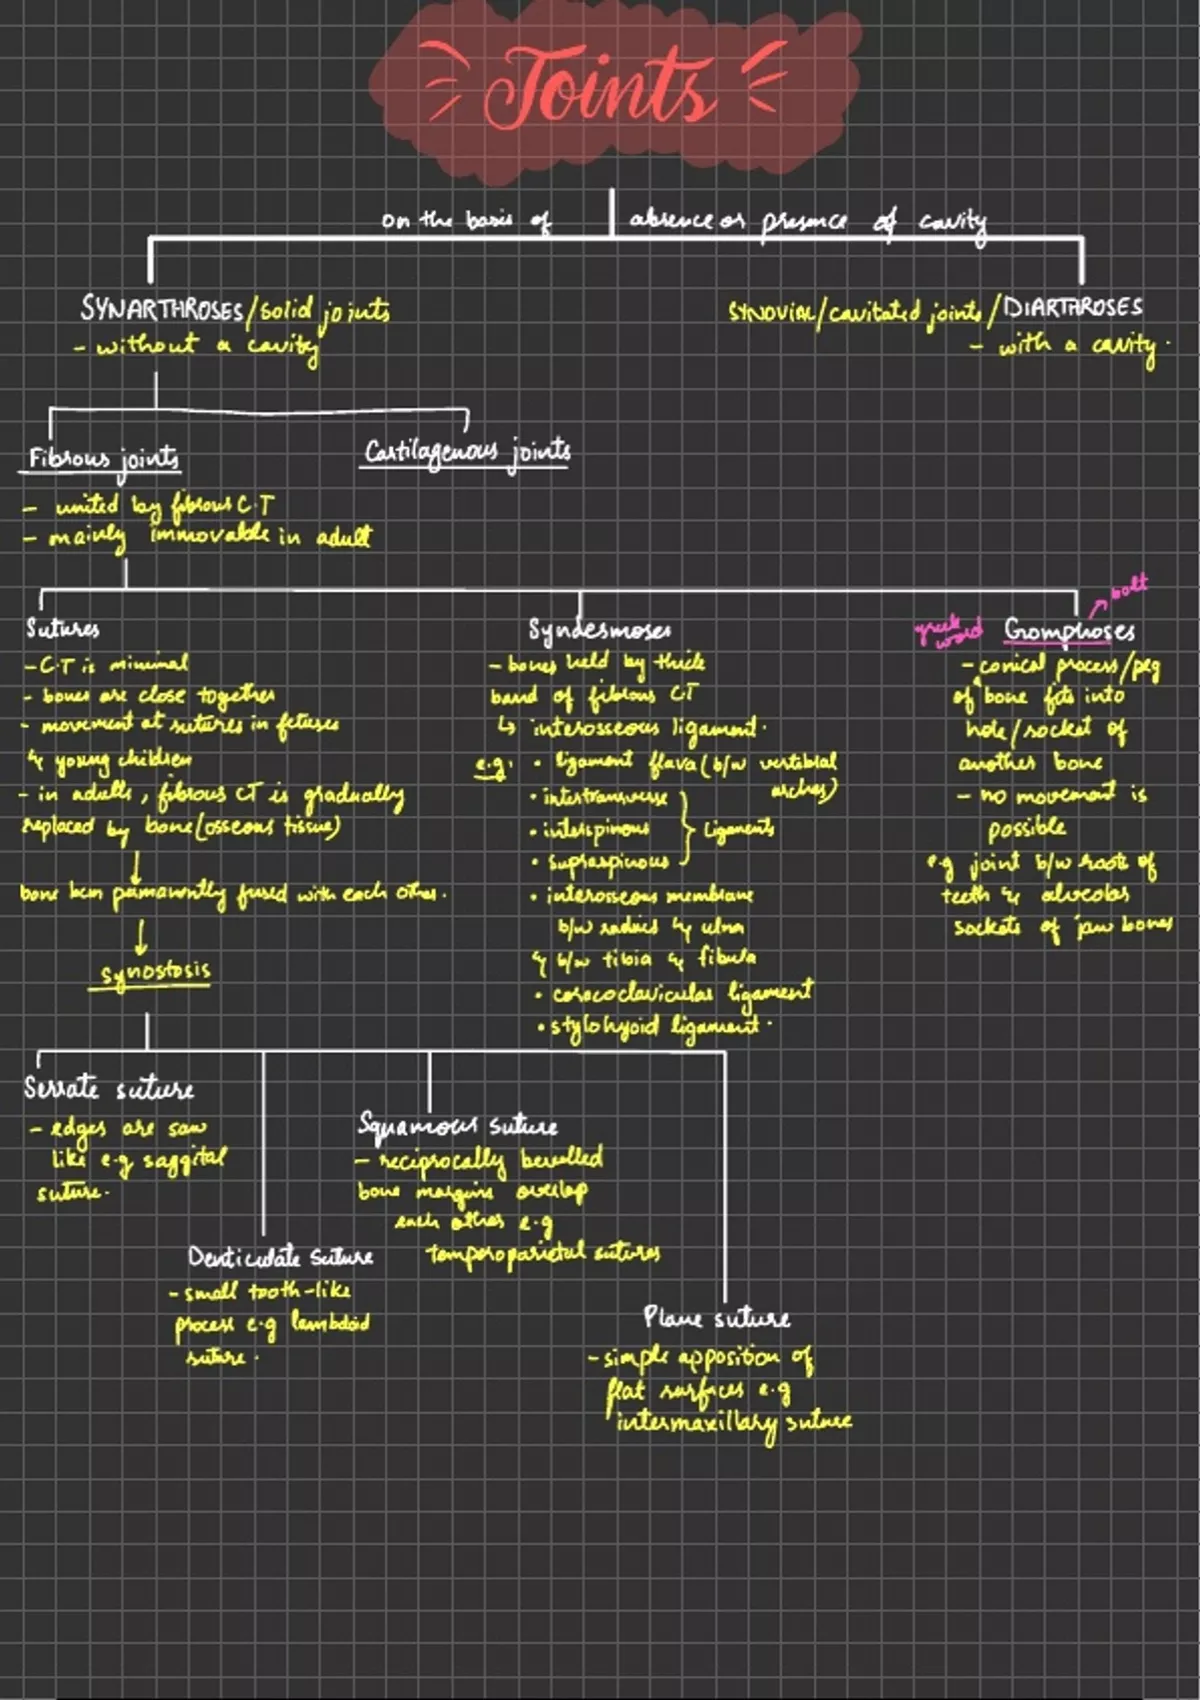 Joints
on the basis of absence or presence of cavity
SYNARTHROSES/solid joints
- without a cavity
SYNOVIAL/cavitated joints/DIARTHROSES
- with a cavity.
Fibrous joints
- united by fibrous C.T
- mainly immovable in adult
Cartilagenous joints
Sutures
- C.T is minimal
- bones are close together
- movement at sutures in fetuses
& young children
- in adults, fibrous CT is gradually
replaced by bone (osseous tissue)
bone bcm permanently fused with each other.
Synostosis
Syndesmoses
- bones held by thick
band of fibrous CT
↳ interosseous ligament.
e.g. • ligament flava (b/w vertibral
arches)
• intertransverse
• interspinous
• supraspinous
Ligaments
• interosseous membrane
b/w radius & ulna
& b/w tibia & fibula
• coracoclavicular ligament
• stylohyoid ligament.
greek
word
Gromphoses
bolt
- conical process/peg
of bone fits into
hole/socket of
another bone
- no movement is
possible
e.g joint b/w roots of
teeth & alveolar
sockets of jaw bones
Serrate suture
- edges are saw
like e.g saggital
suture.
Denticulate suture
- small tooth-like
process e.g lambdoid
suture.
Squamous suture
- reciprocally bevelled
bone margins overlap
each other e.g
temporoparietal sutures
Plane suture
- simple apposition of
flat surfaces e.g
intermaxillary suture